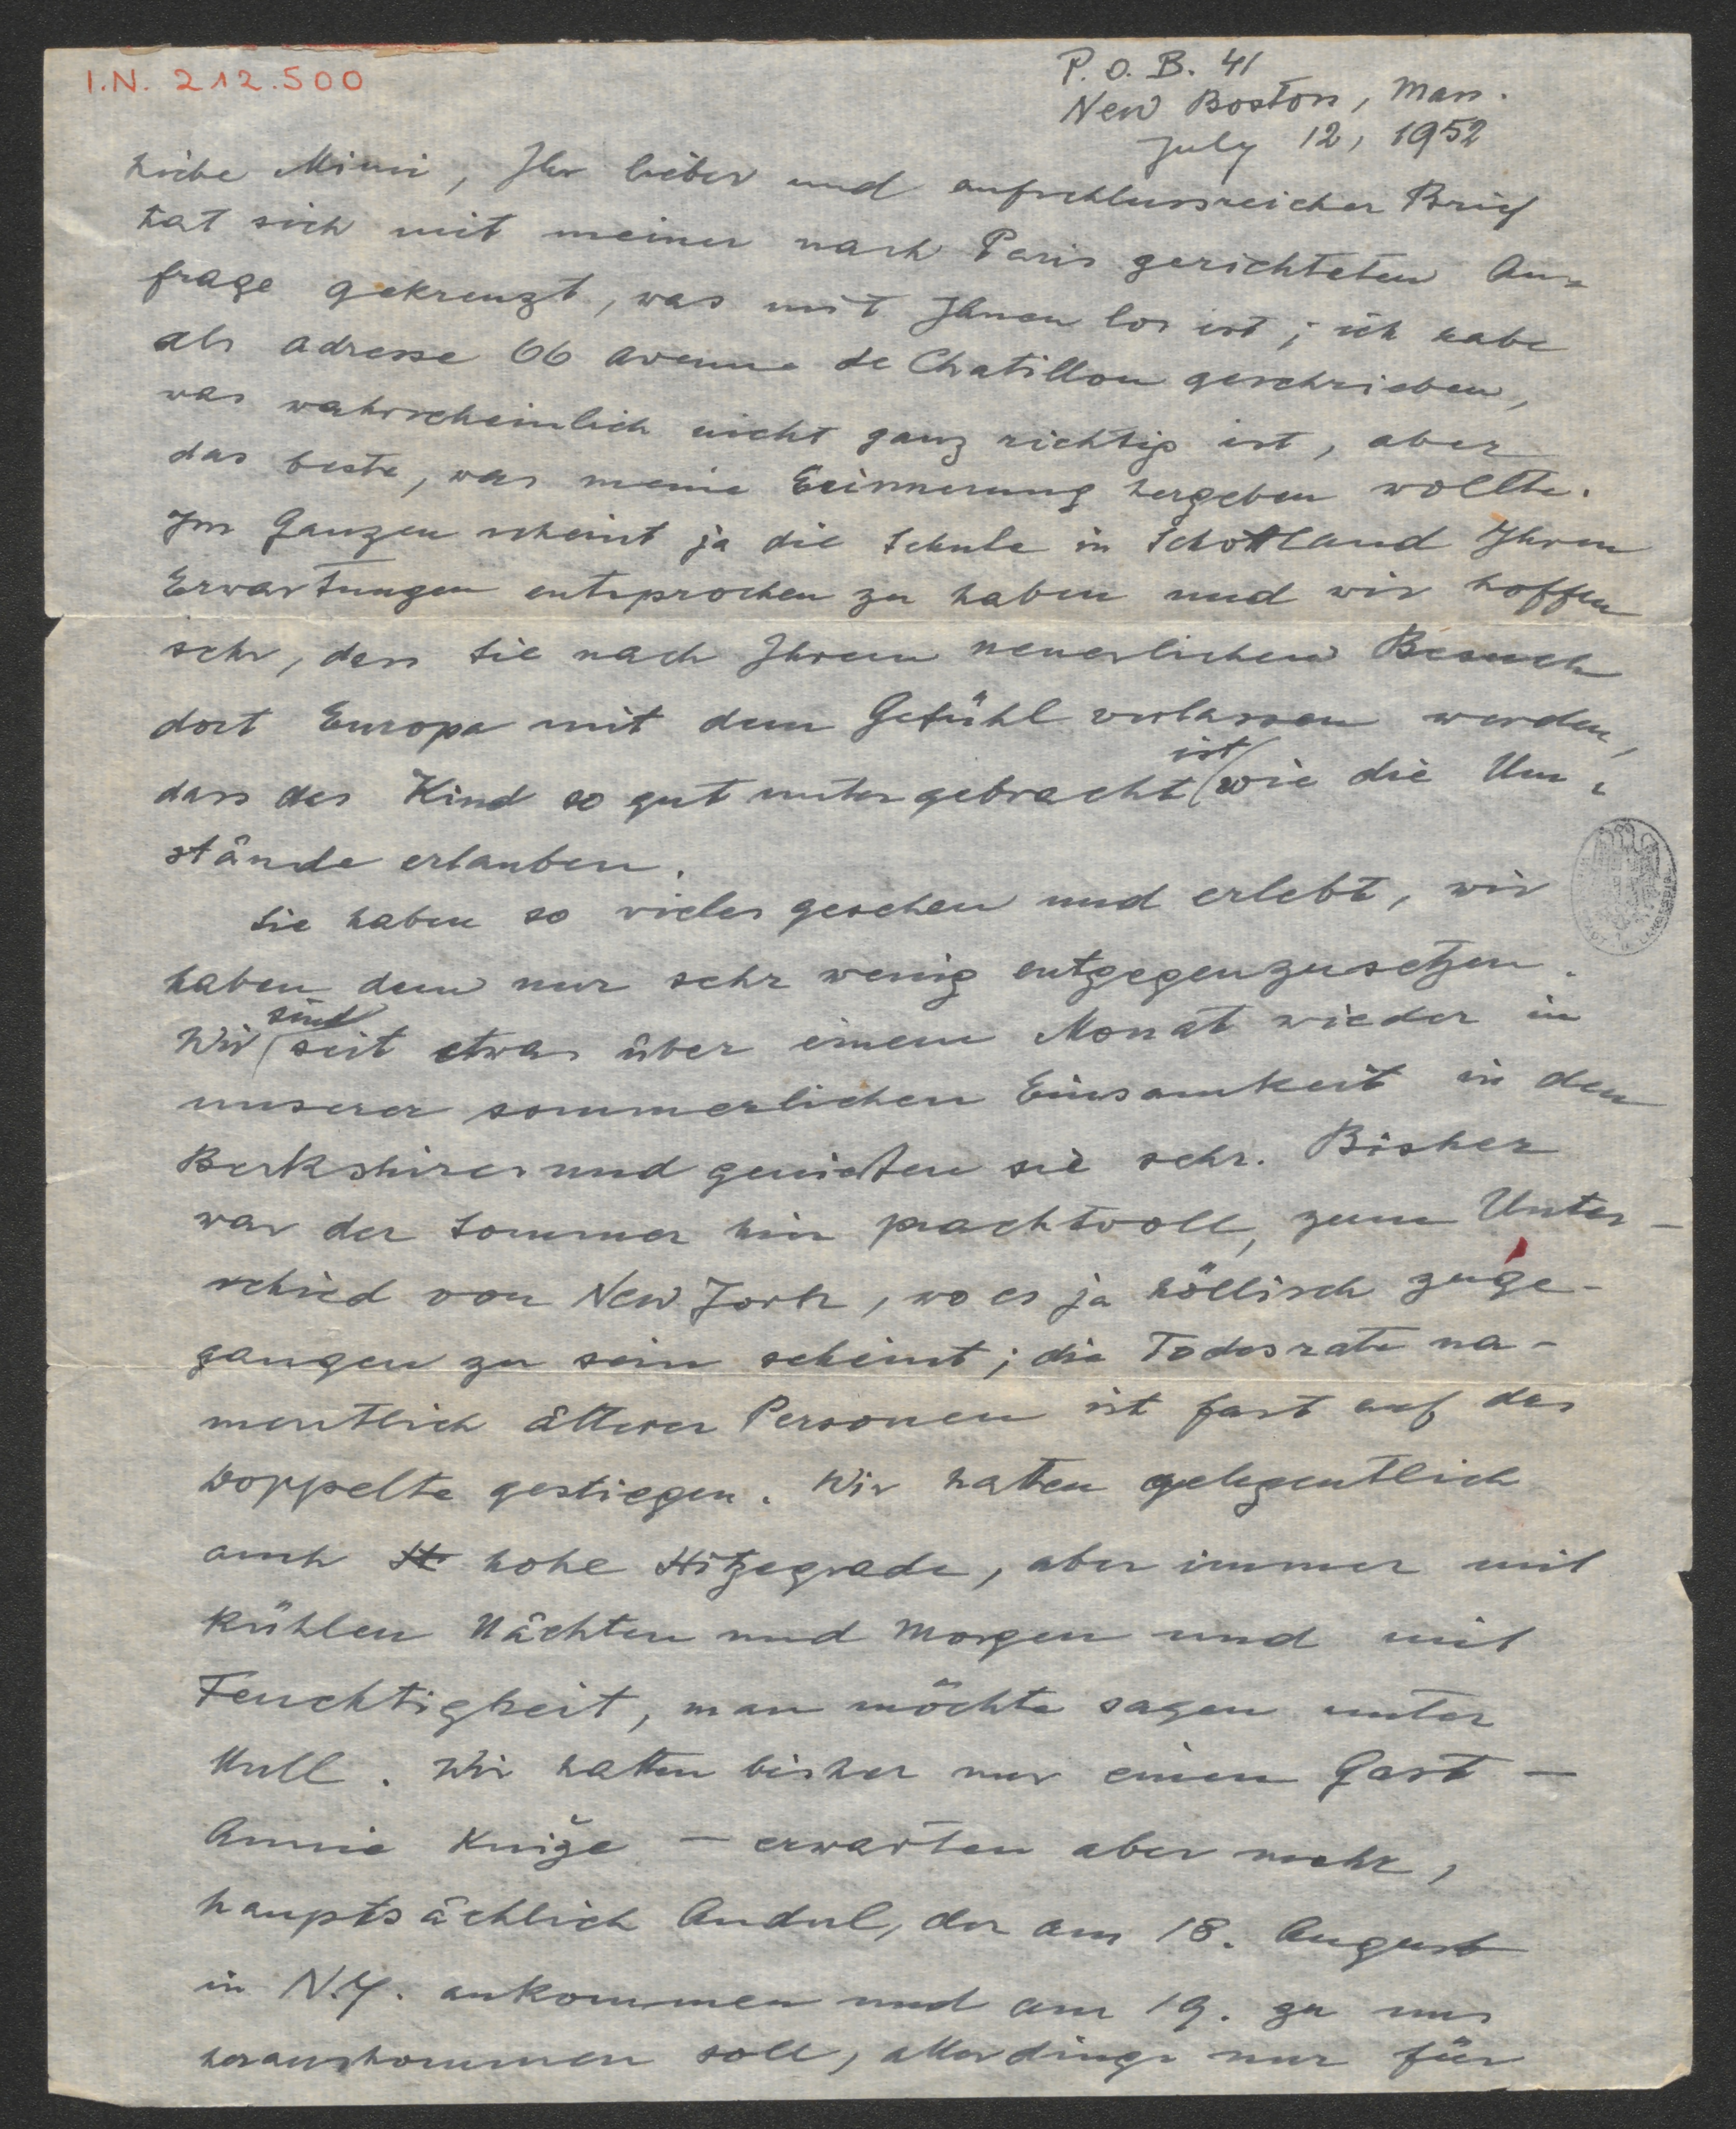 I.N. 212.500
P.O.B. 41
New Boston, Mass.
July 12, 1952
Liebe Mimi, Ihr lieber und aufschlussreicher Brief
hat sich mit meiner nach Paris gerichteten An-
frage gekreuzt, was mit Ihnen los ist; ich habe
als Adresse 66 Avenue de Chatillon geschrieben,
was wahrscheinlich nicht ganz richtig ist, aber
das beste, was meine Erinnerung hergeben wollte.
Im Ganzen scheint ja die Schule in Schottland Ihren
Erwartungen entsprochen zu haben und wir hoffen
sehr, dass Sie nach Ihrem neuerlichen Besuch
dort Europa mit dem Gefühl verlassen werden,
dass das Kind so gut untergebracht ist wie die Um-
stände erlauben.
Sie haben so vieles gesehen und erlebt, wir
haben dem nur sehr wenig entgegenzusetzen.
Wir sind seit etwas über einem Monat wieder in
unserer sommerlichen Einsamkeit in den
Berkshires und geniessen sie sehr. Bisher
war der Sommer hier prachtvoll, zum Unter-
schied von New York, wo es ja höllisch zuge-
gangen zu sein scheint; die Todesrate na-
mentlich älterer Personen ist fast auf das
Doppelte gestiegen. Wir hatten gelegentlich
auch hohe Hitzegrade, aber immer mit
kühlen Nächten und Morgen und mit
Feuchtigkeit, man möchte sagen unter
Null. Wir hatten bisher nur einen Gast —
Annie Kniže — erwarten aber mehr,
hauptsächlich Andul, der am 18. August
in N.Y. ankommen und am 19. zu uns
herauskommen soll, allerdings nur für